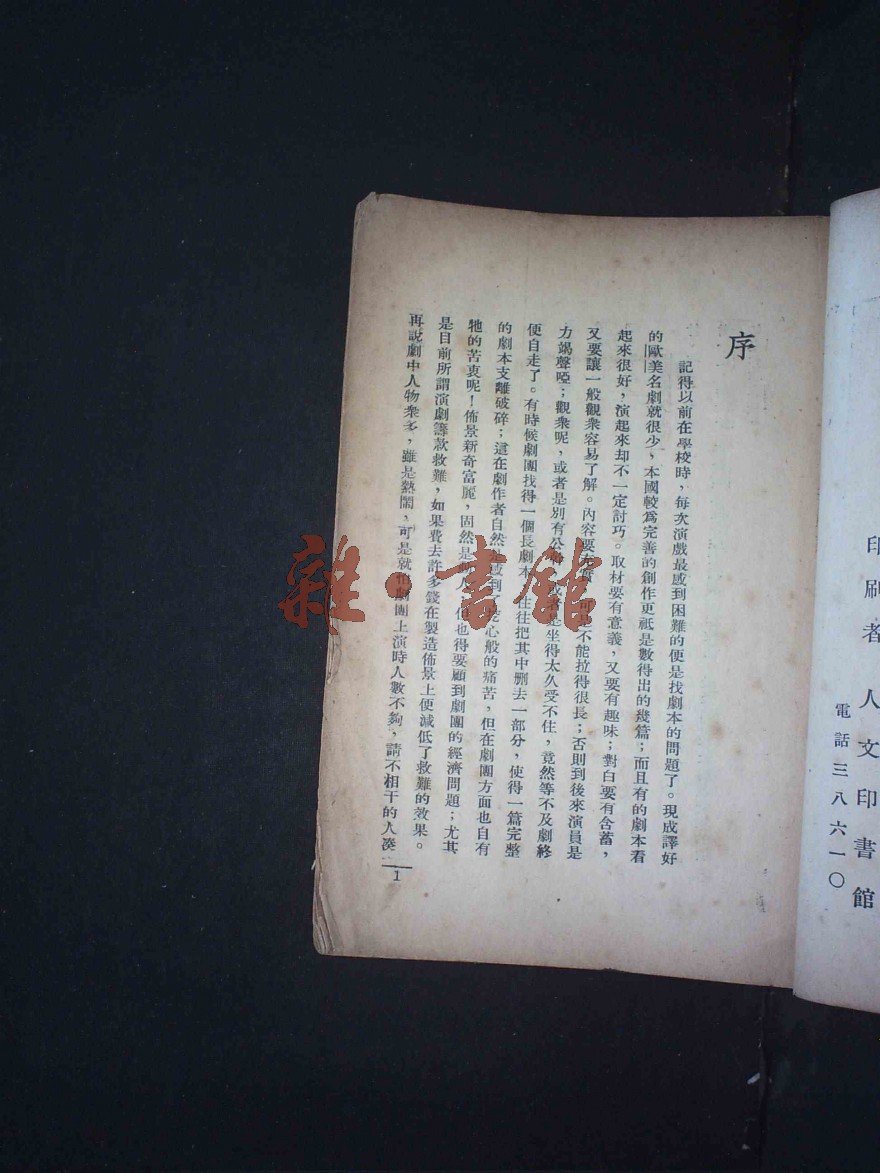 印刷者 人文印書館
電話三八六一〇
序
記得以前在學校時，每次演戲最感到困難的便是找劇本的問題了。現成譯好
的歐美名劇就很少，本國較為完善的創作更祇是數得出的幾篇；而且有的劇本看
起來很好，演起來却不一定討巧。取材要有意義，又要有趣味；對白要有含蓄，
又要讓一般觀衆容易了解。內容要充實，可是不能拉得很長；否則到後來演員是
力竭聲啞；觀衆呢，或者是別有公幹，或者是坐得太久受不住，竟然等不及劇終
便自走了。有時候劇團找得一個長劇本，往往把其中删去一部分，使得一篇完整
的劇本支離破碎；這在劇作者自然是感到了挖心般的痛苦，但在劇團方面也自有
牠的苦衷呢！佈景新奇富麗，固然是人，但也得要顧到劇團的經濟問題；尤其
是目前所謂演劇籌款救難，如果費去許多錢在製造佈景上便減低了救難的效果。
再說劇中人物衆多，雖是熱鬧，可是就怕劇團上演時人數不夠，請不相干的人湊
1
雜·書館